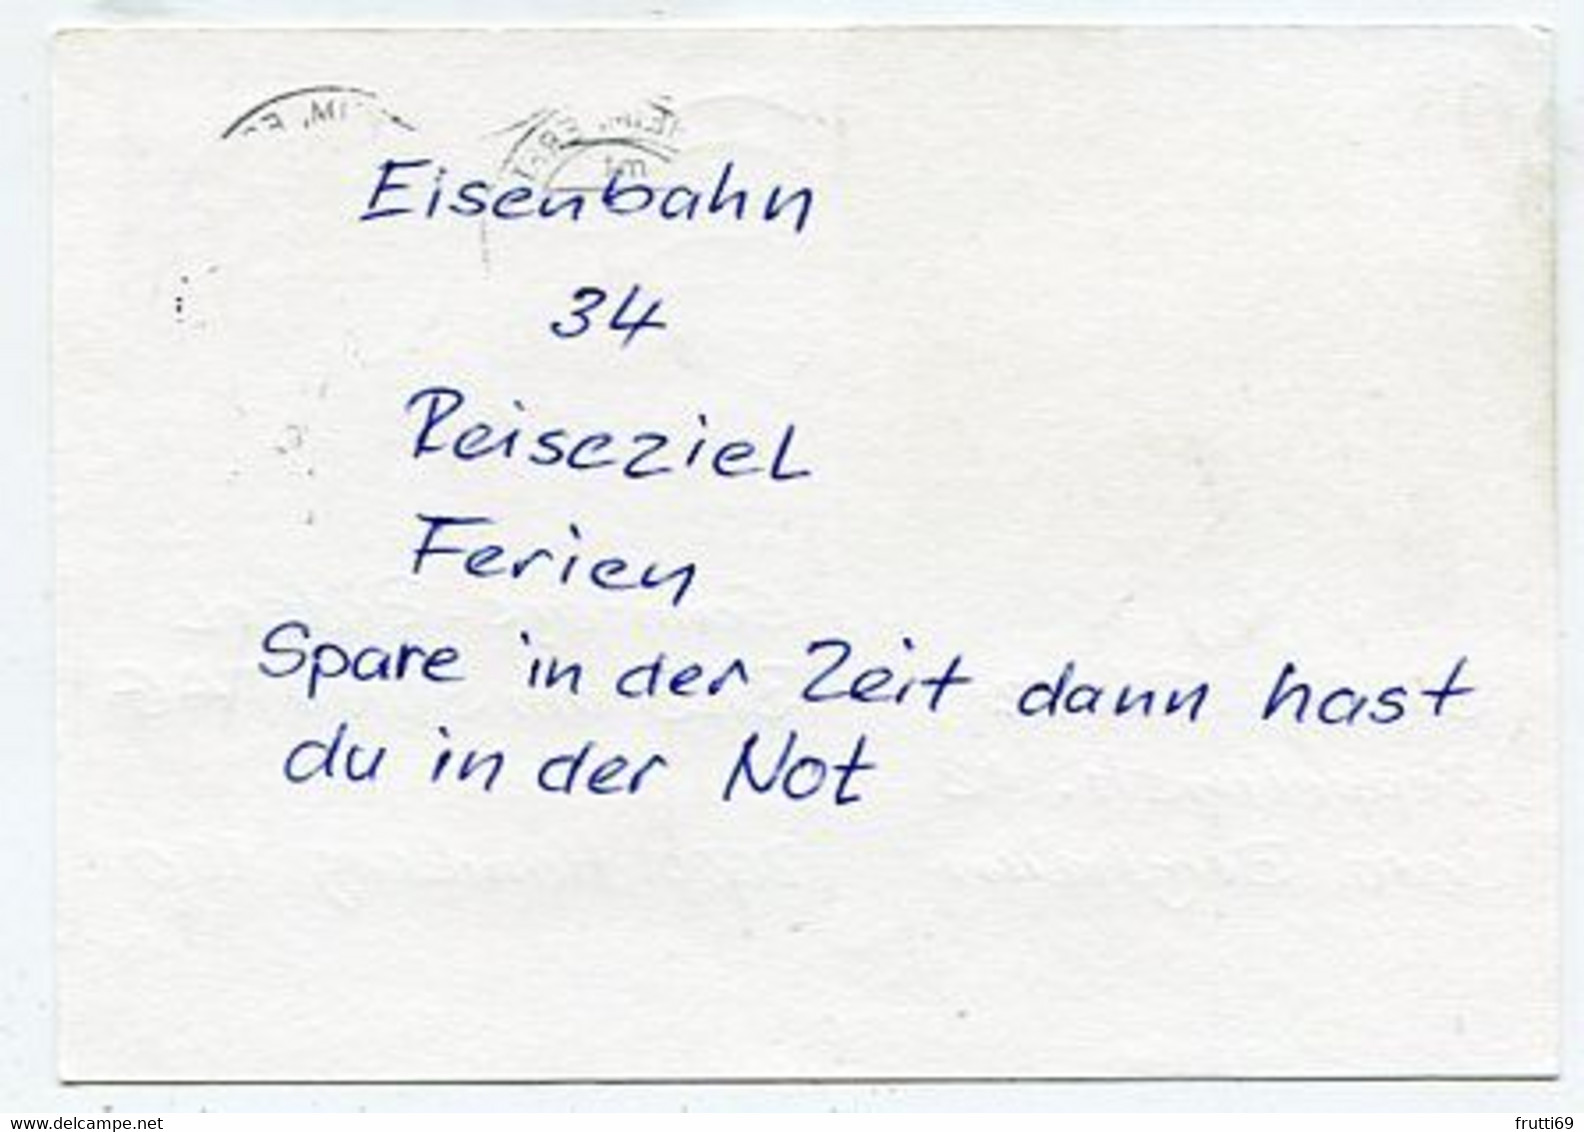 Eisenbahn
34
Reiseziel
Ferien
Spare in der Zeit dann hast
du in der Not
www.delcampe.net
frutti69